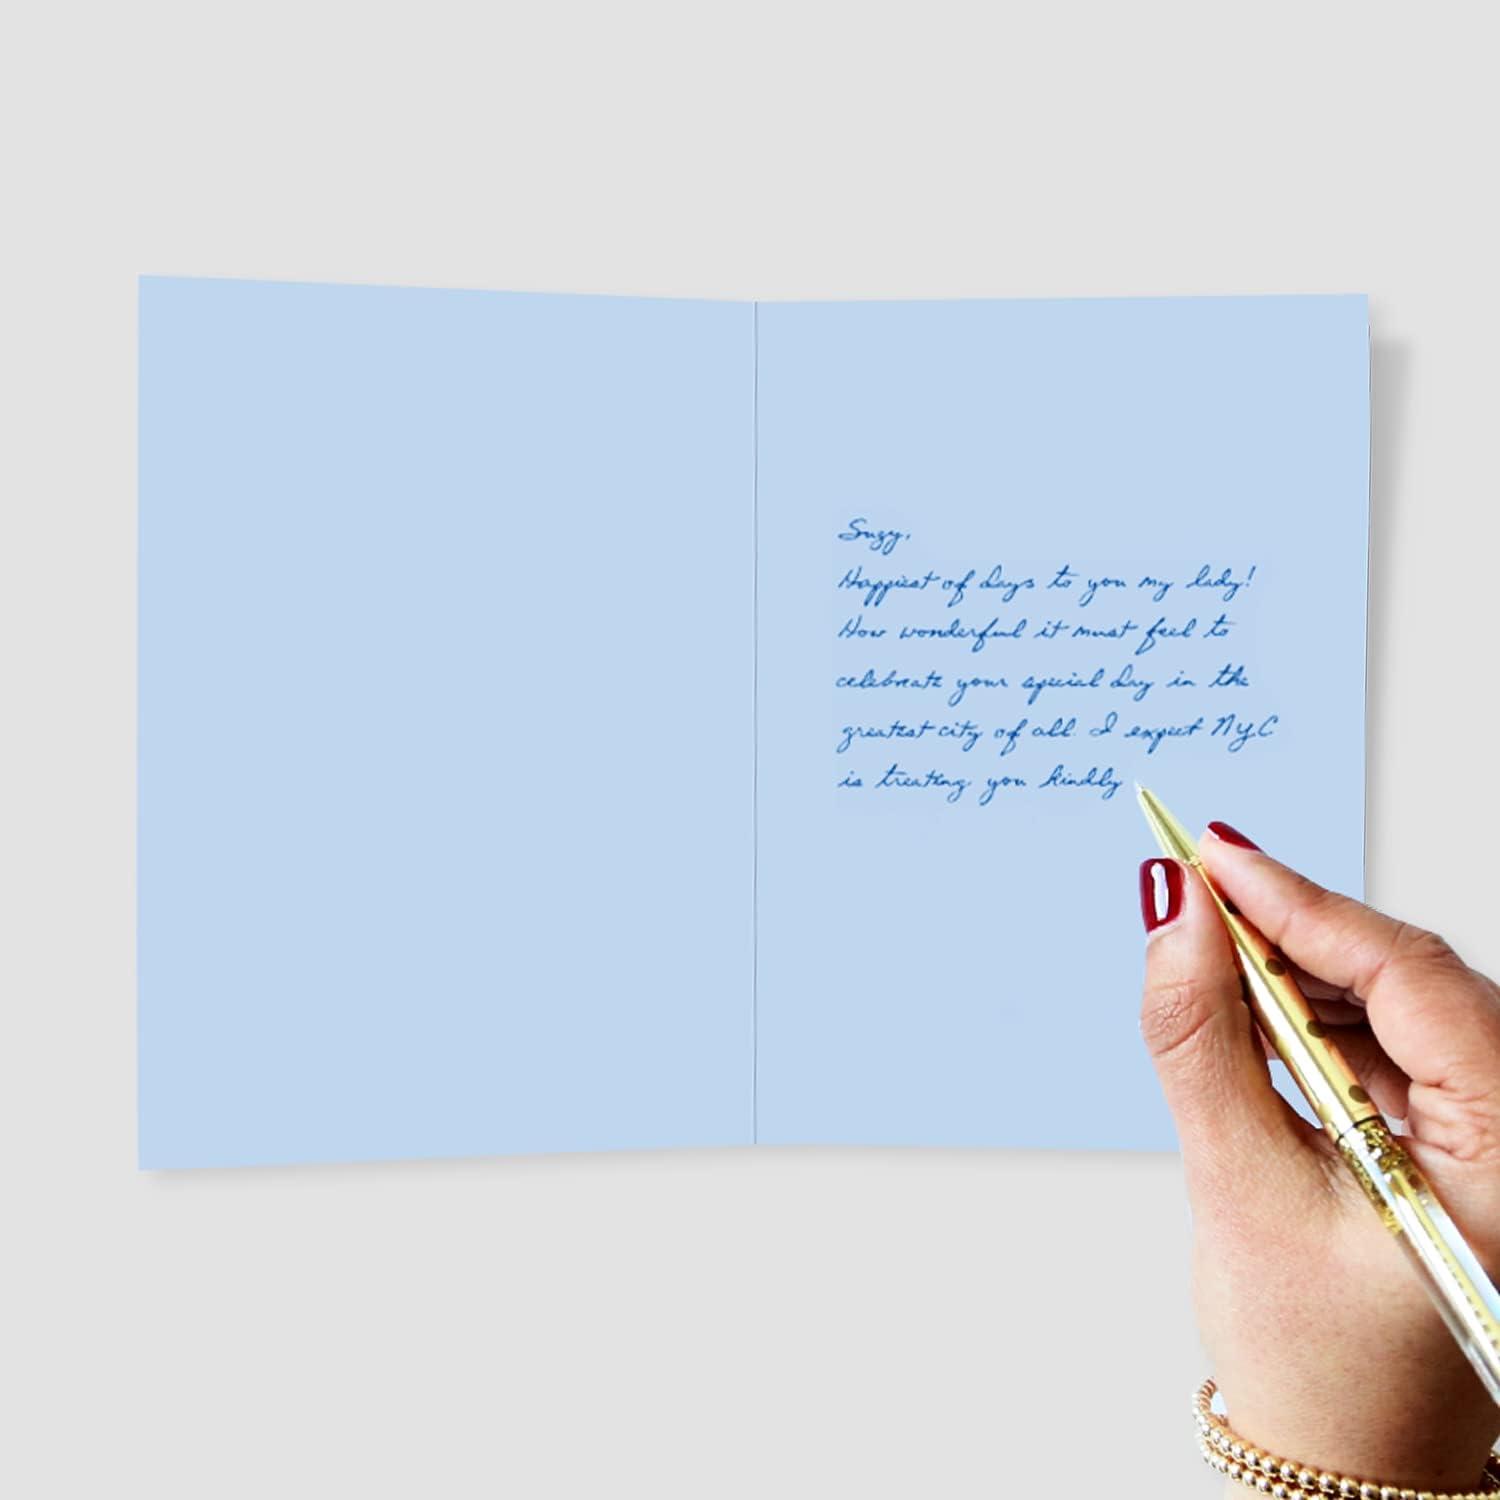 Suzy,
Happiest of days to you my lady!
How wonderful it must feel to
celebrate your special day in the
greatest city of all. I expect NYC
is treating you kindly